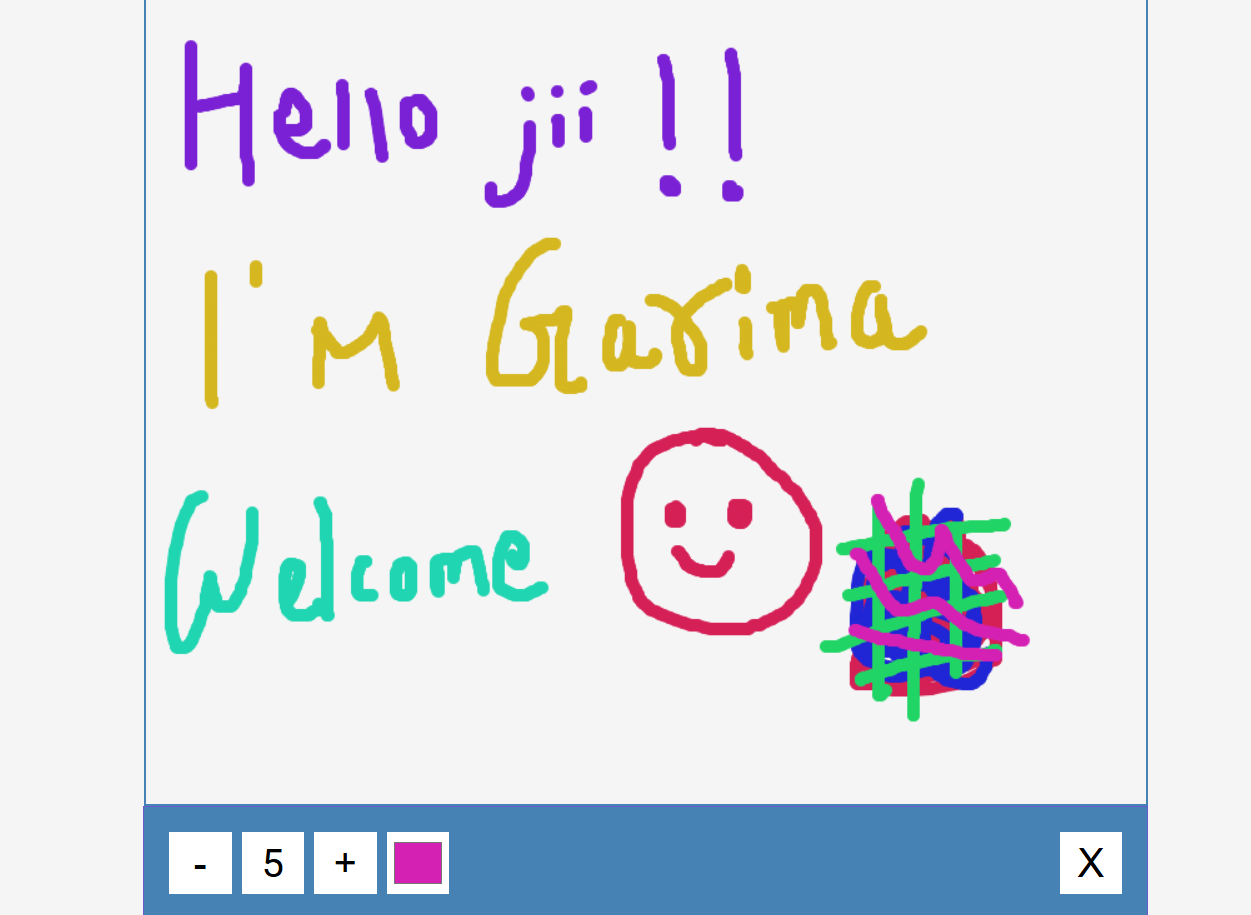 Hello jii !!
I'm Garima
Welcome
- 5 + X